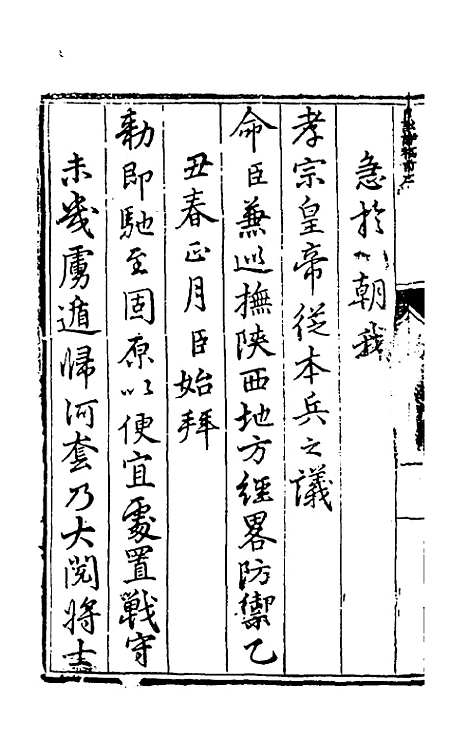 急於八朝我
孝宗皇帝従本兵之議
命臣兼巡撫陝西地方經畧防禦乙
丑春正月臣始拜
勅即馳至固原以便宜處置戰守
未幾虜遁歸河套乃大閱將士